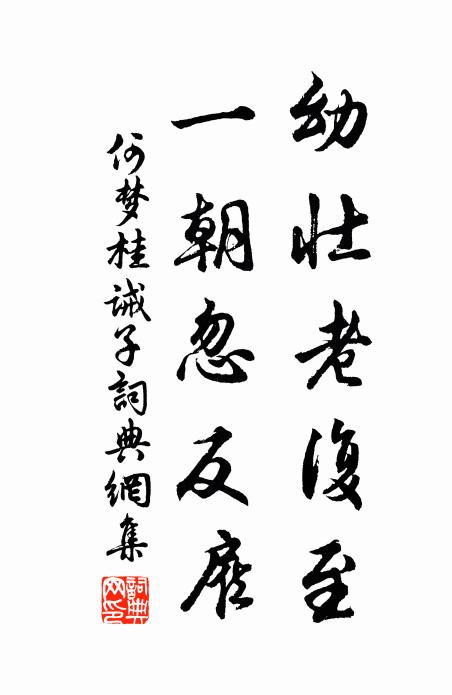 幼壮老復至
一朝忽反

何梦桂誡子詞典網集
詞典网印